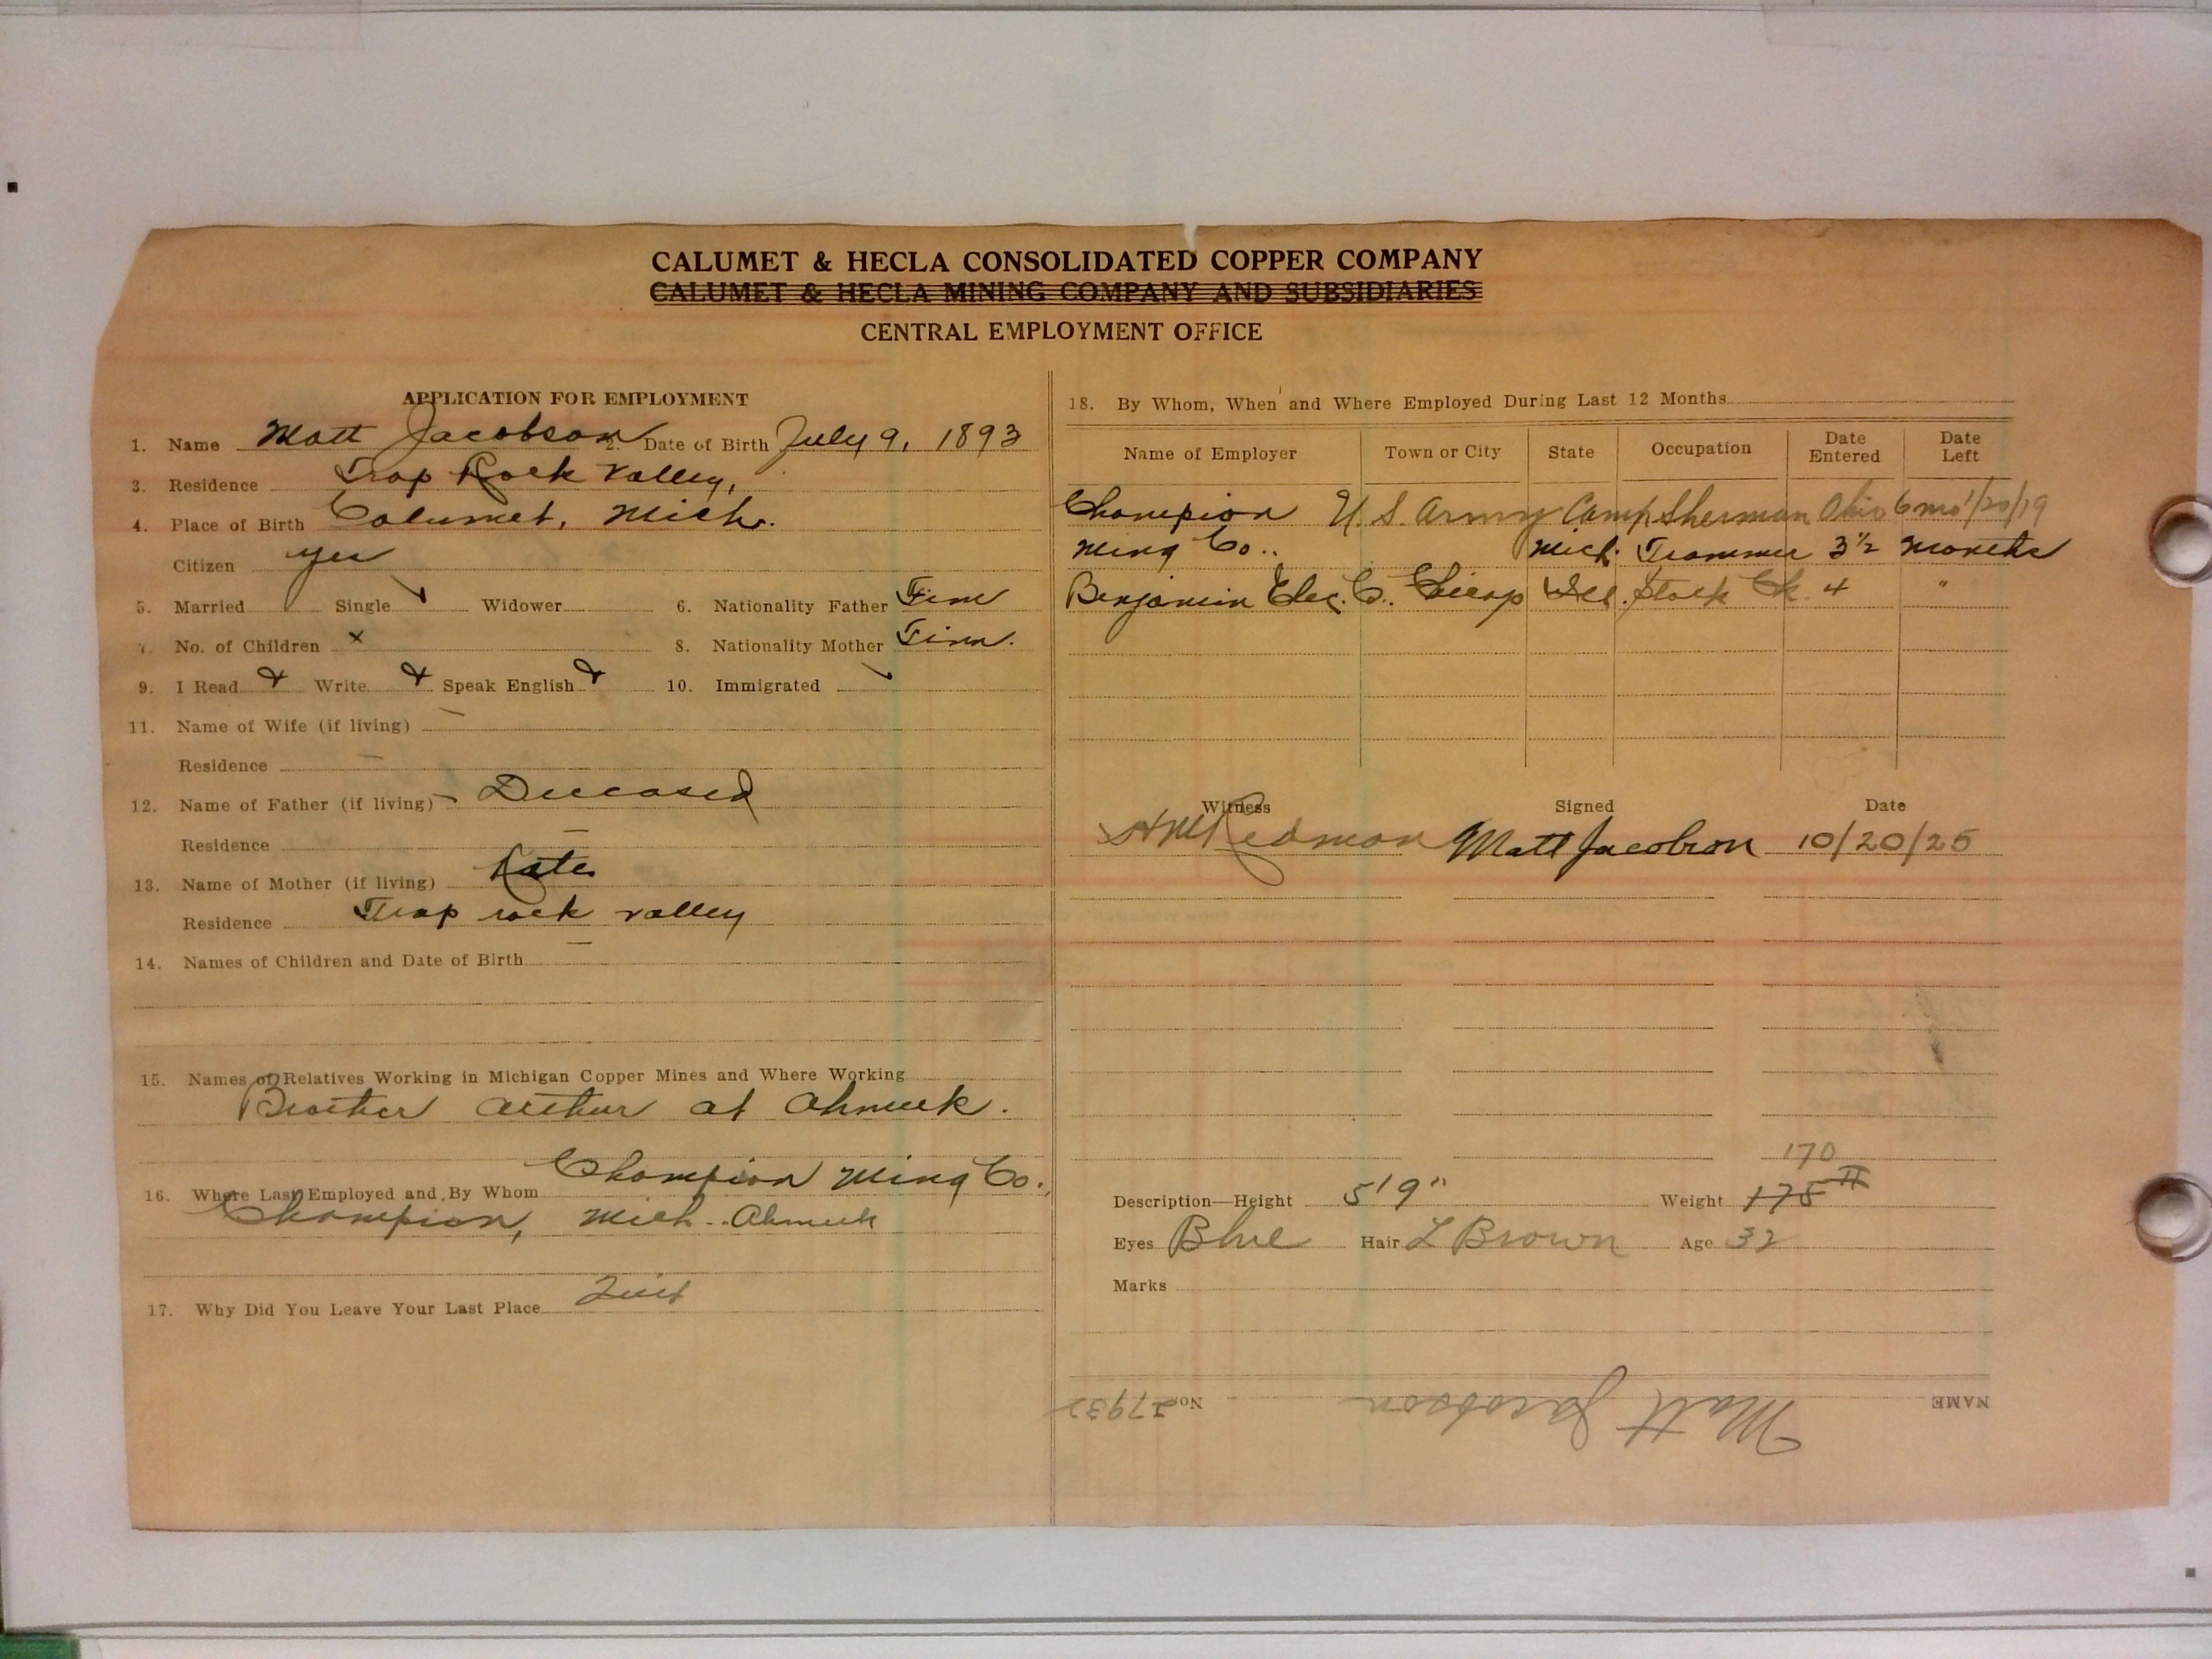 CALUMET & HECLA CONSOLIDATED COPPER COMPANY
CALUMET & HECLA MINING COMPANY AND SUBSIDIARIES
CENTRAL EMPLOYMENT OFFICE
APPLICATION FOR EMPLOYMENT
1. Name Matt Jacobson 2. Date of Birth July 9, 1893
3. Residence Trap Rock Valley,
4. Place of Birth Calumet, Mich.
Citizen yes
5. Married Single ✓ Widower 6. Nationality Father Finn
7. No. of Children x 8. Nationality Mother Finn.
9. I Read Write Speak English 10. Immigrated
11. Name of Wife (if living) —
Residence —
12. Name of Father (if living) - Deceased
Residence —
13. Name of Mother (if living) Kate
Residence Trap rock valley
14. Names of Children and Date of Birth —
15. Names of Relatives Working in Michigan Copper Mines and Where Working
Brother Arthur at Ahmeek.
16. Where Last Employed and By Whom Champion Ming Co.
Champion, Mich.. Ahmeek
17. Why Did You Leave Your Last Place Quit
18. By Whom, When and Where Employed During Last 12 Months
Name of Employer Town or City State Occupation Date Entered Date Left
Champion U.S. Army Camp Sherman Ohio 6 mo 1/20/19
Ming Co.. Mich. Trammer 3½ months
Benjamin Elec. Co. Chicago Ill. Stock Ck. 4 "
Witness Signed Date
Redman Matt Jacobson 10/20/25
170
Description—Height 5'9" Weight 175 #
Eyes Blue Hair L Brown Age 32
Marks
NAME Matt Jacobson No. 27932